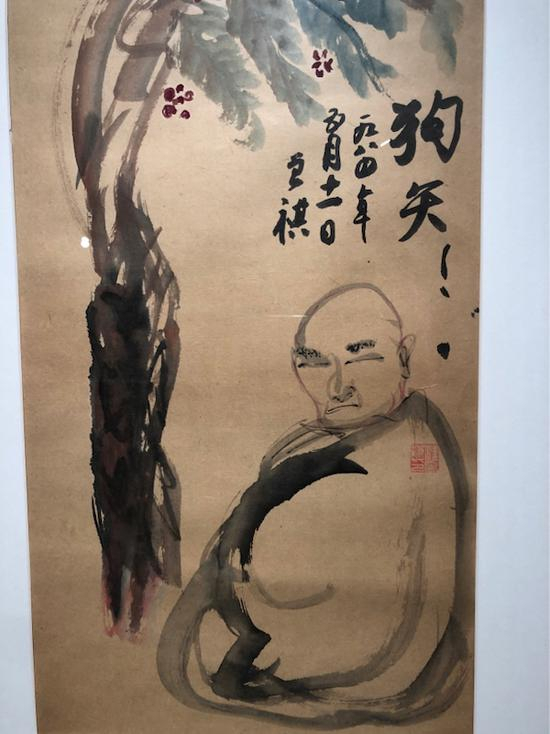 狗矢！
一九八四年
五月十一日
曾祺